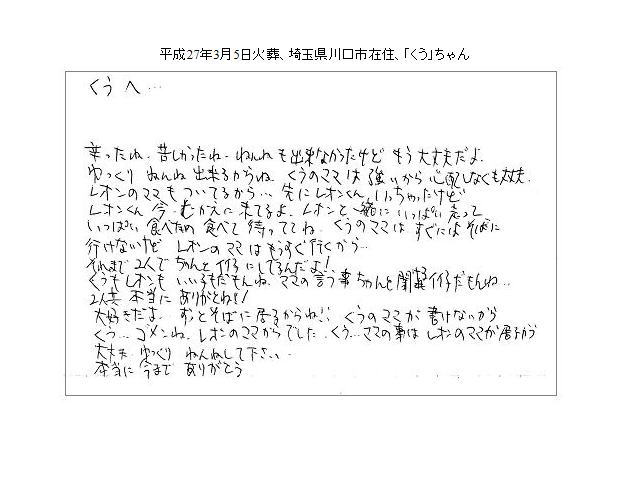 平成27年3月5日火葬、埼玉県川口市在住、「くう」ちゃん
くうへ…
辛ったね。苦しかったね。ねんねも出来なかったけど もう大丈夫だよ。
ゆっくり ねんね 出来るからね。くうのママは 強いから 心配しなくも大丈夫。
レオンのママもついてるから… 先にレオンくん いっちゃったけど
レオンくん 今 むかえに来てるよ。レオンと一緒に いっぱい走って
いっぱい 食べもの 食べて 待っててね。くうのママは すぐには そばに
行けないけど レオンのママはもうすぐ行くから…
それまで 2人で ちゃんと 仔にしてるんだよ!
くうもレオンも いい子だもんね。ママの言う事ちゃんと聞ける仔だもんね。
2人共 本当に ありがとね!!
大好きだよ。ずっとそばに居るからね!! くうのママが書けないから
くう… ゴメンね。レオンのママからでした。くう…ママの事は レオンのママが居るから
大丈夫 ゆっくり ねんねして下さい…
本当に 今まで ありがとう